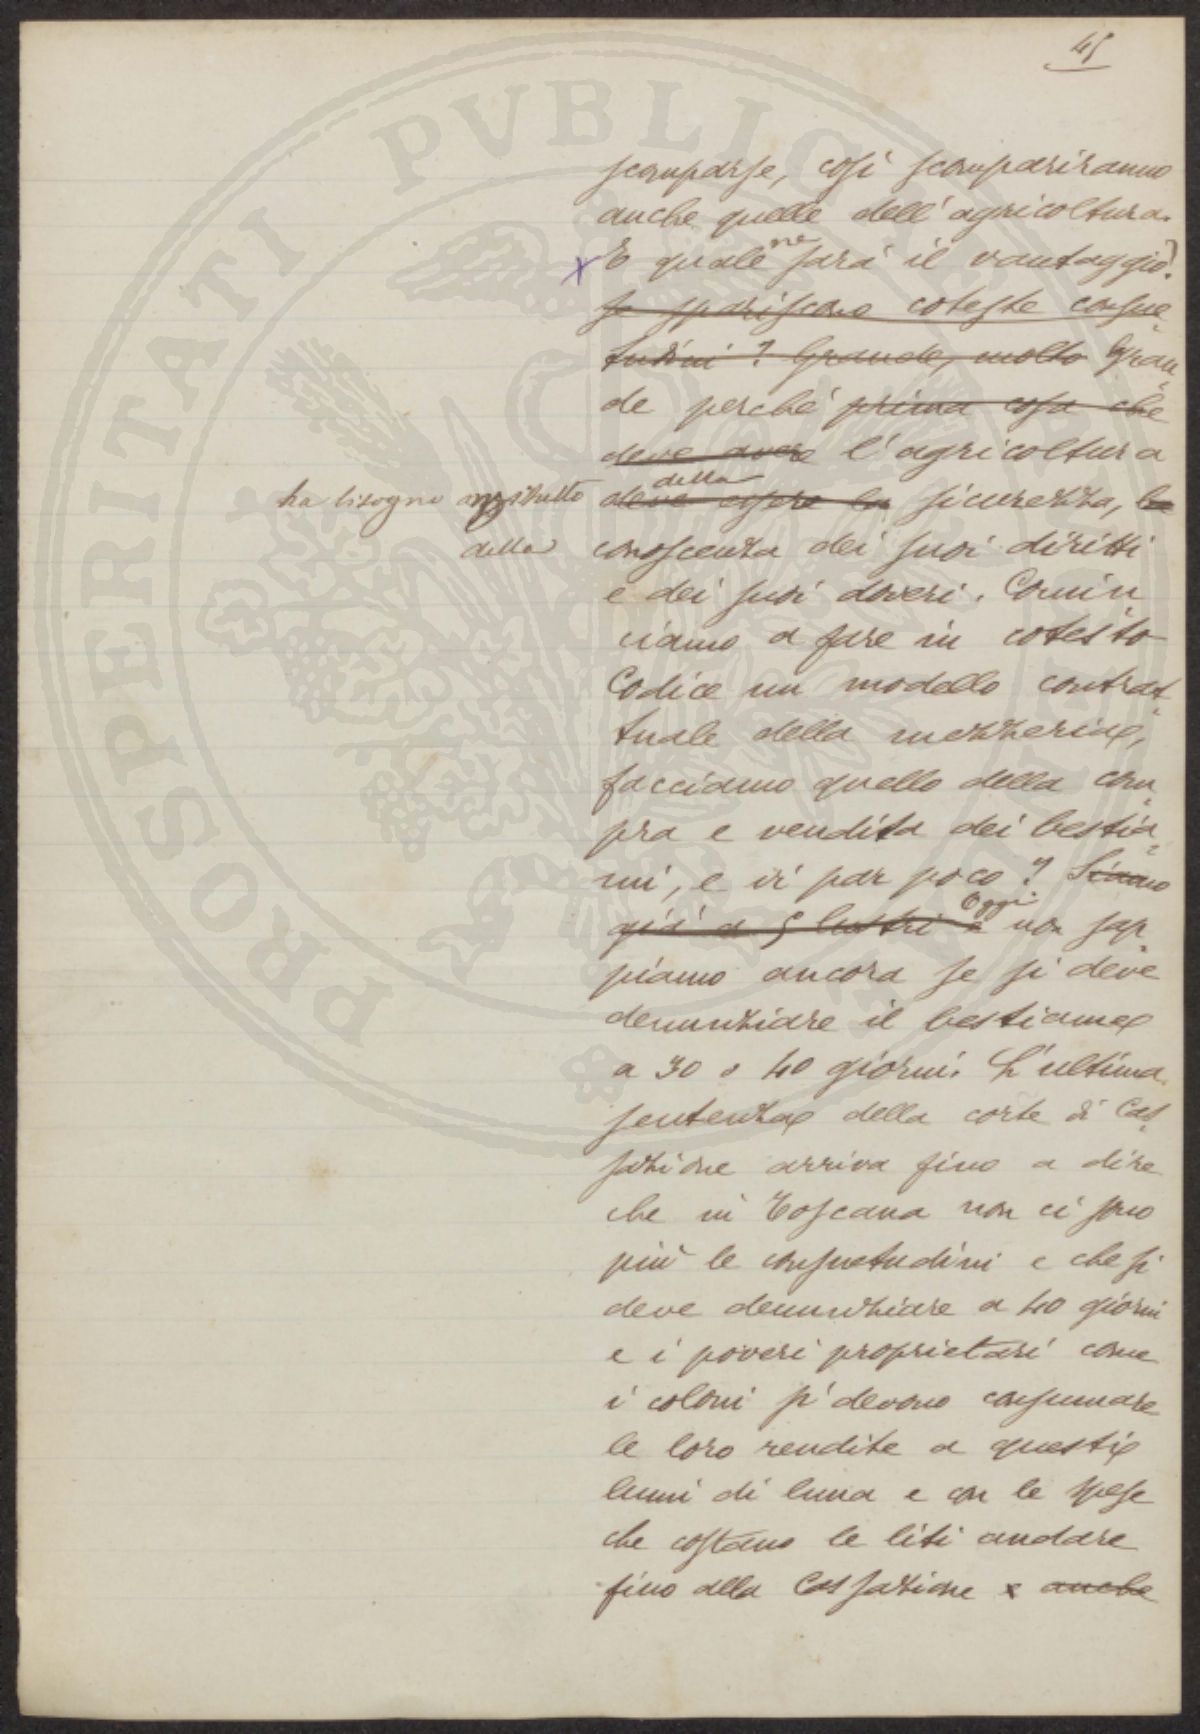 45
scomparse, così scompariranno
anche quelle dell'agricoltura.
E quale ne sarà il vantaggio?
se spariscono coteste consue
tudini? Grande, molto Gran
de perché prima cosa che
deve avere l'agricoltura
ha bisogno della
deve essere la sicurezza, la
della conoscenza dei suoi diritti
e dei suoi doveri. Comin
ciamo a fare in cotesto
Codice un modello contrat
tuale della mezzeria,
facciamo quello della com
pra e vendita dei bestia
mi, e vi par poco? Siamo
già a 5 lustri e Oggi non sap
piamo ancora se si deve
denunziare il bestiame
a 30 o 40 giorni. L'ultima
sentenza della corte di Cas
sazione arriva fino a dire
che in Toscana non ci sono
più le consuetudini e che si
deve denunziare a 40 giorni
e i poveri proprietari come
i coloni si devono consumare
le loro rendite a questi
lumi di luna e con le spese
che costano le liti andare
fino alla Cassazione e anche
PROSPERITATI PVBLICAE